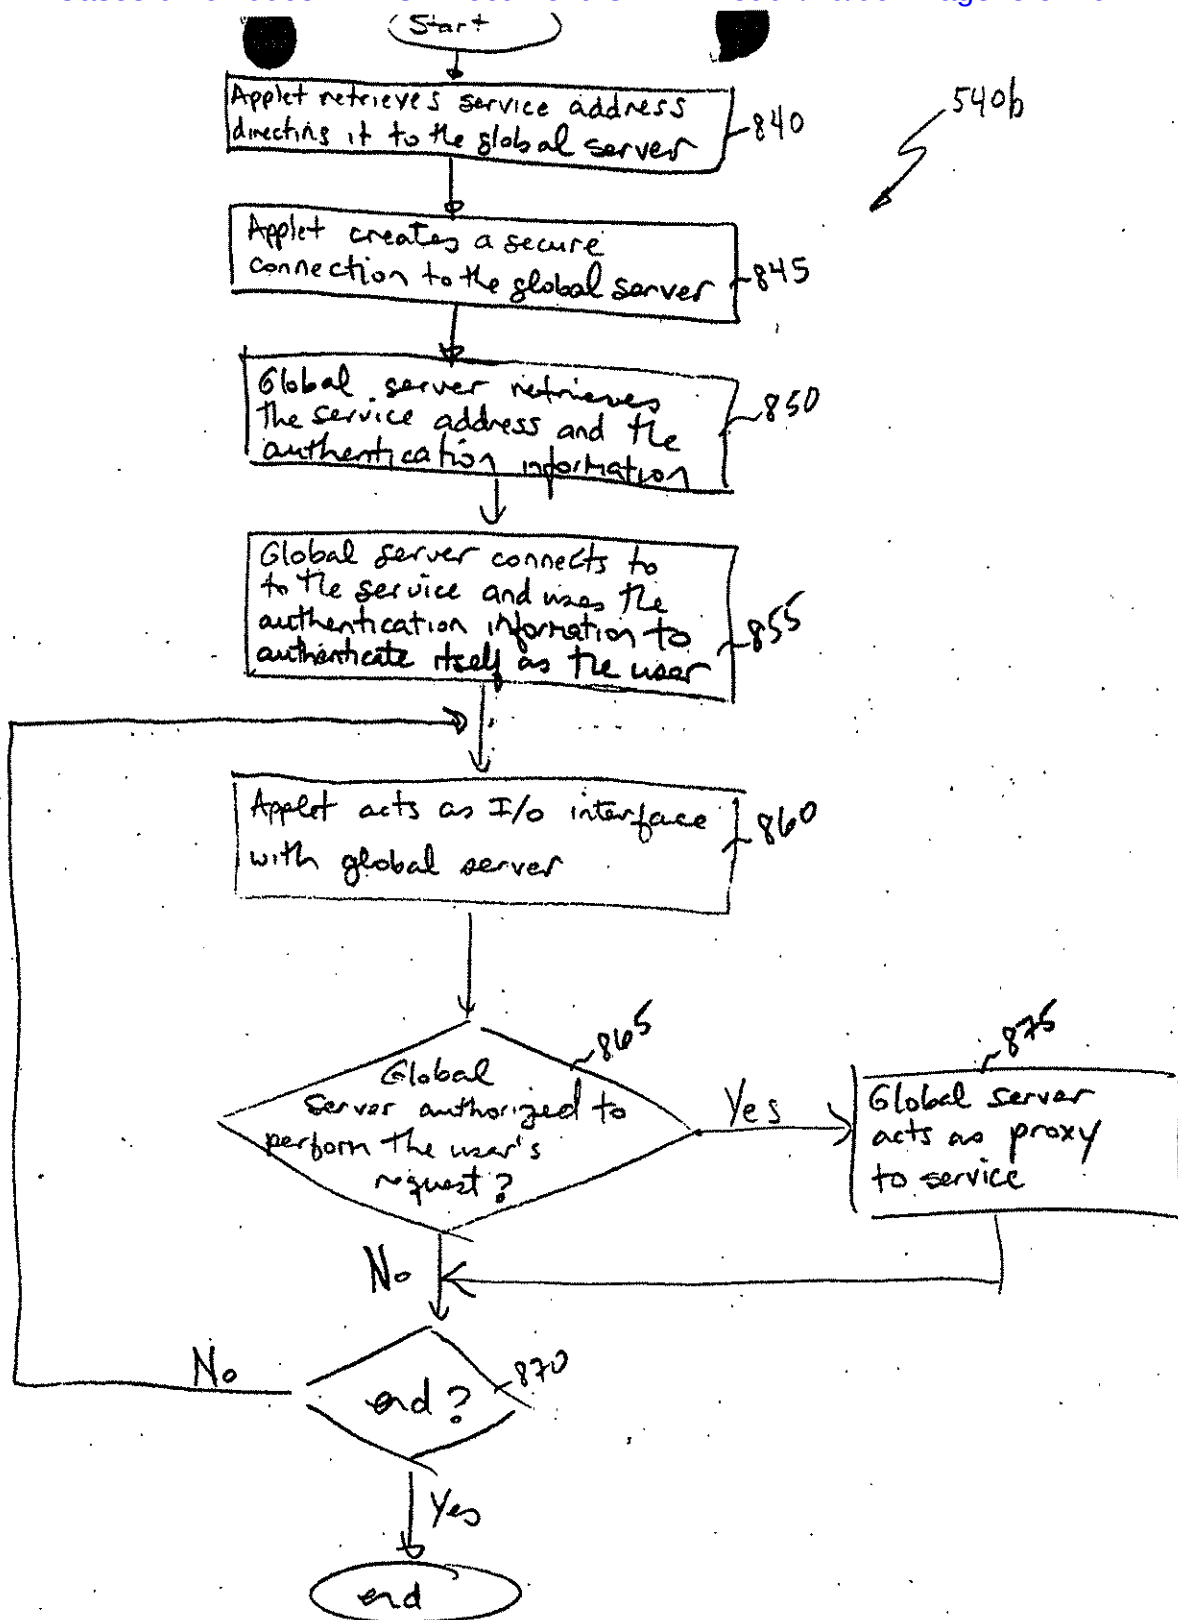 Start
540b
Applet retrieves service address
directing it to the global server
840
Applet creates a secure
connection to the global server
845
Global server retrieves
the service address and the
authentication information
850
Global server connects to
to the service and uses the
authentication information to
authenticate itself as the user
855
Applet acts as I/O interface
with global server
860
865
Global
Server authorized to
perform the user's
request?
Yes
875
Global server
acts as proxy
to service
No
No
end?
870
Yes
end